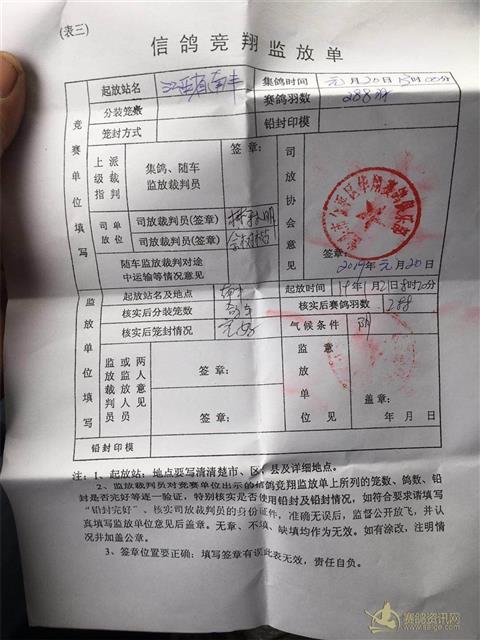 (表三)
信鸽竞翔监放单
起放站名 江西省南丰 集鸽时间 元月20日15时00分
分装笼数 赛鸽羽数 288羽
笼封方式 铅封印模
竞赛单位填写
上级指派裁判
集鸽、随车监放裁判员
签章:
司放协会意见
司放单位
司放裁判员(签章)
司放裁判员(签章)
签章:
2019年元月20日
随车监放裁判对途中运输等情况意见
监放单位填写
起放站名及地点 南丰 起放时间 19年1月21日8时20分
核实后分装笼数 核实后赛鸽羽数 288
核实后笼封情况 完好 气候条件 阴
监放裁判员或两人放人意见
签章:
签章:
监放单位意见
盖章:
年月日
铅封印模
注:1、起放站:地点要写清清楚市、区、县及详细地点。
2、监放裁判员对竞赛单位出示的信鸽竞翔监放单上所列的笼数、鸽数、铅
封是否完好等逐一验证,特别核实是否使用铅封及铅封情况,如符合要求请填写
“铅封完好”、核实司放裁判员的身份证件,准确无误后,监督公开放飞,并认
真填写监放单位意见后盖章。无章、不填、缺填均作为无效。如有涂改,注明情
况并加盖公章。
3、签章位置要正确:填写签章有误此表无效,责任自负。
赛鸽资讯网
www.saige.com